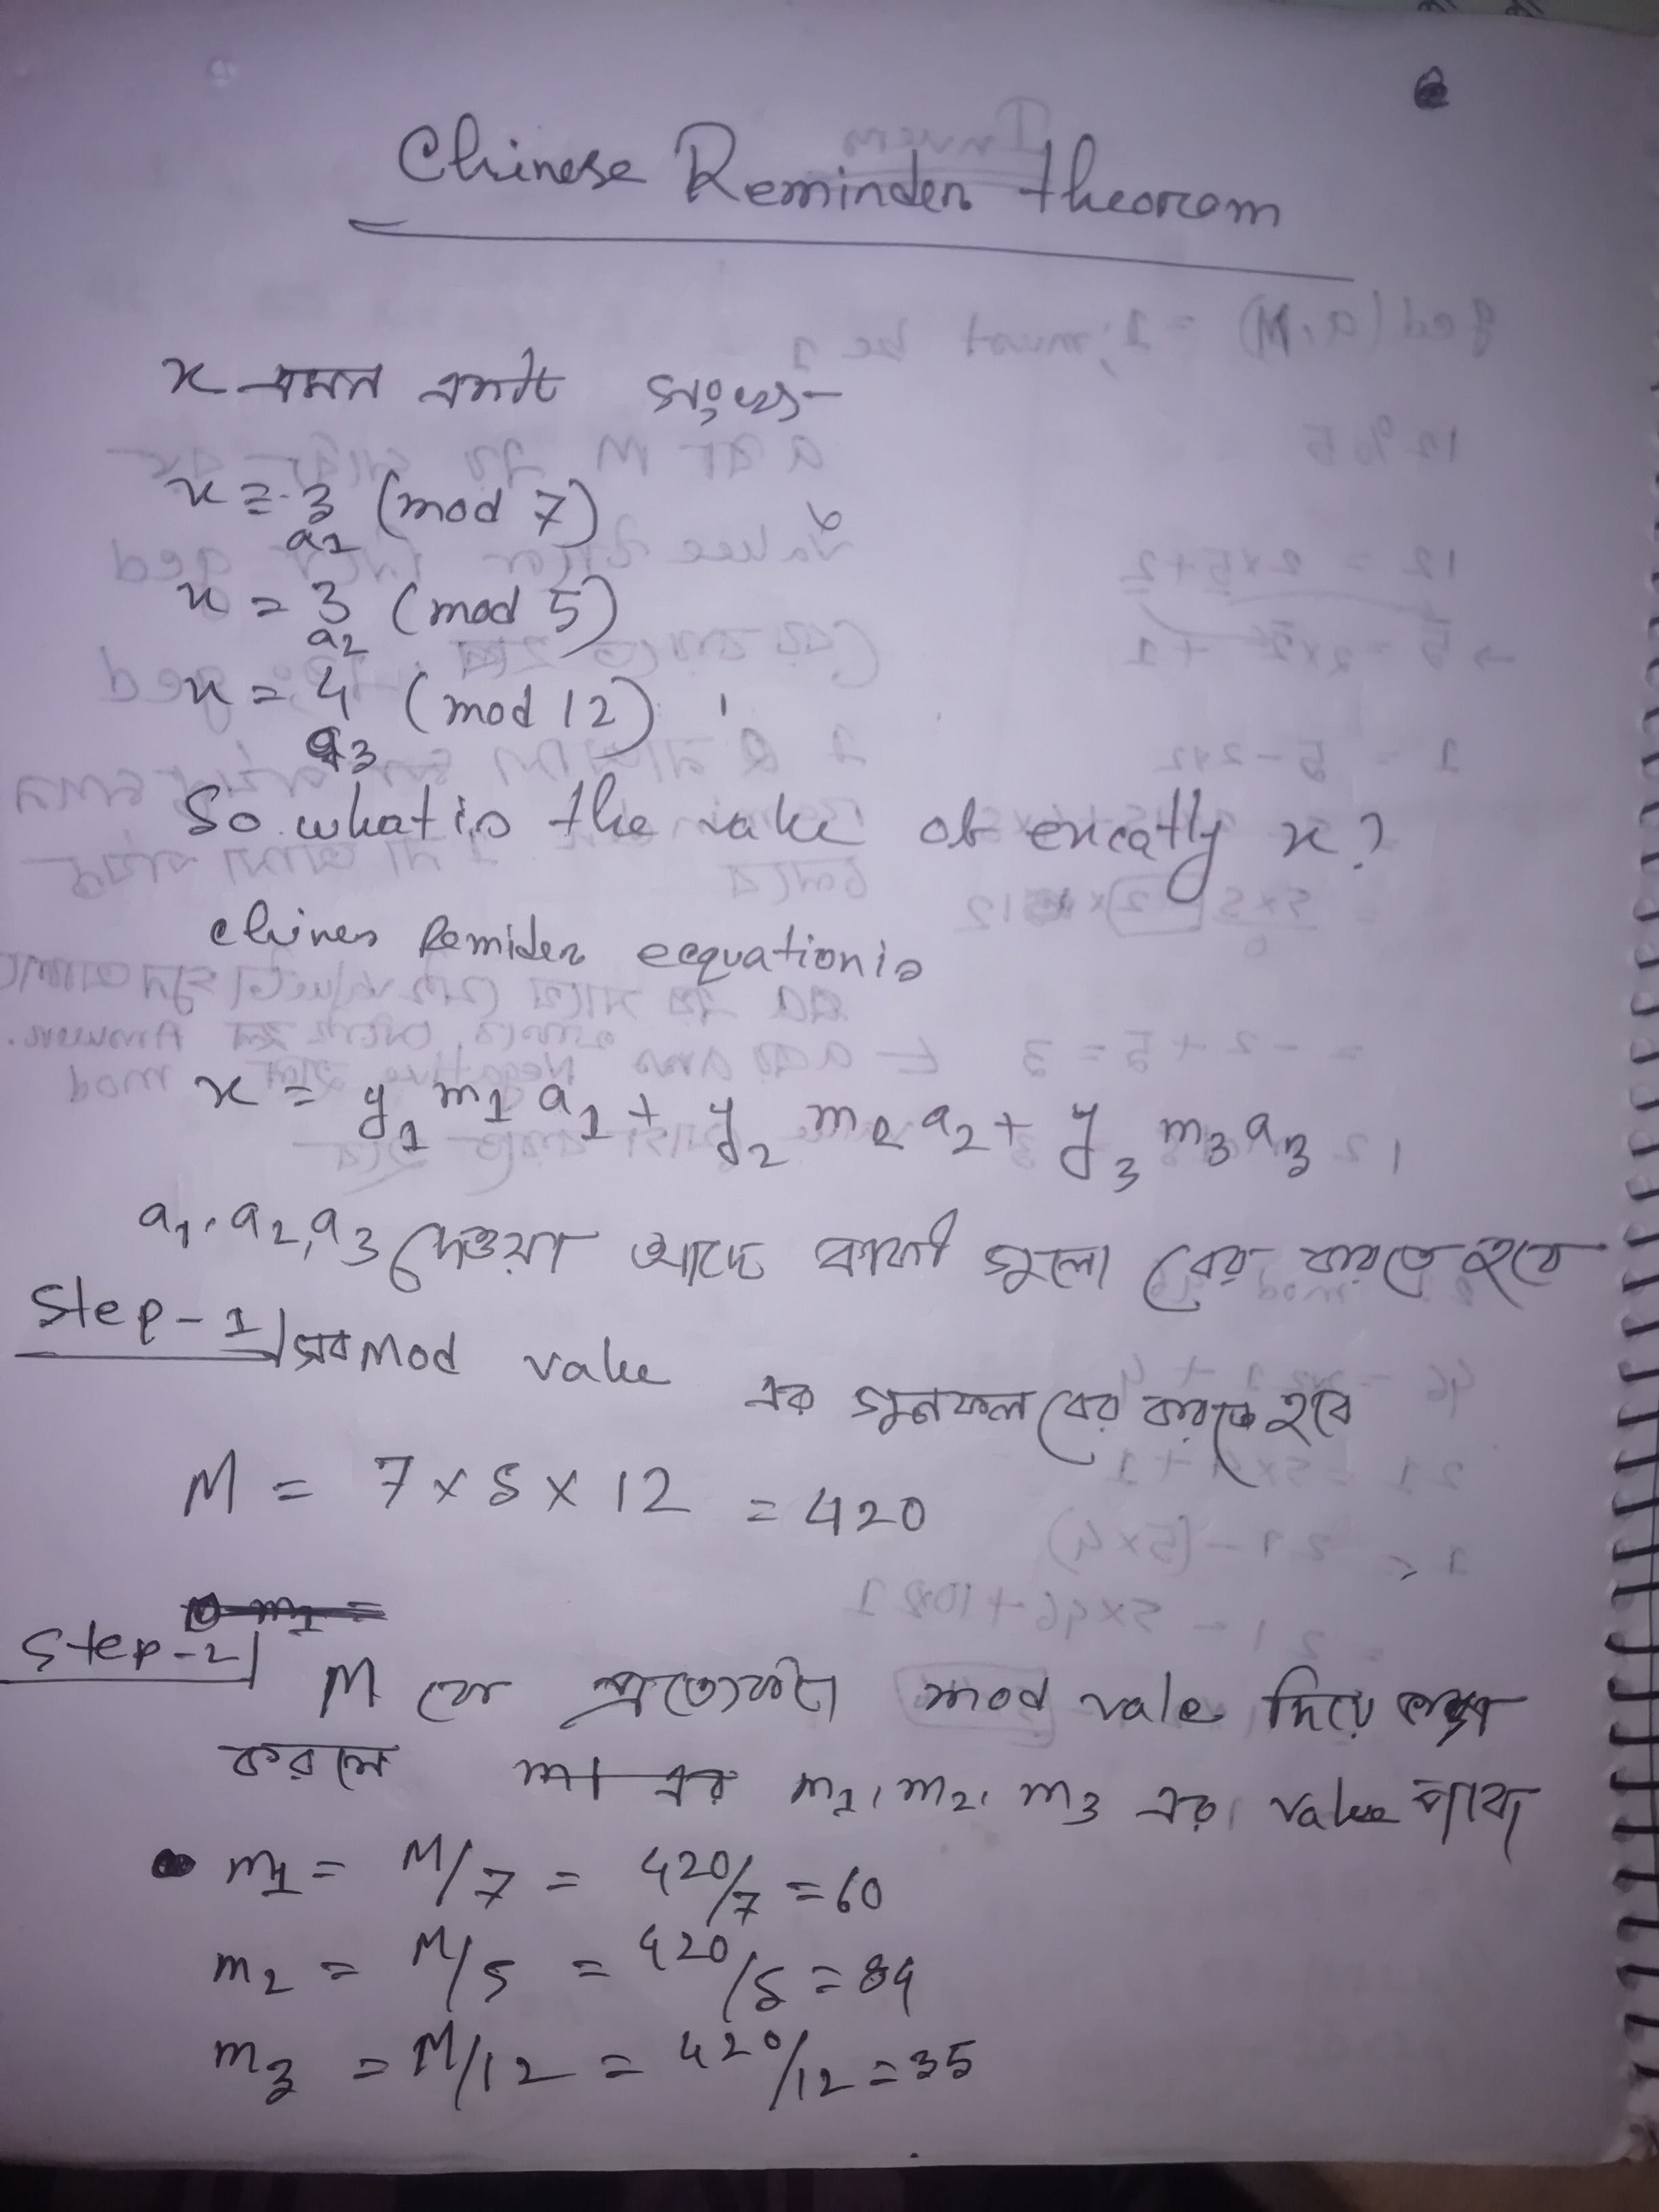 Chinese Reminder theorem
x এমন একটি সংখ্যা
x = 3 (mod 7)
a1
x = 3 (mod 5)
a2
x = 4 (mod 12)
a3
So what is the value of excatly x?
chines Remider ecquation is
x = y1 m1 a1 + y2 m2 a2 + y3 m3 a3
a1, a2, a3 দেওয়া আছে বাকী গুলো বের করতে হবে
Step-1 সব mod value এর গুনফল বের করতে হবে
M = 7 x 5 x 12 = 420
Step-2 M কে প্রত্যেকটা mod vale দিয়ে ভাগ
করলে m1 এর m1, m2, m3 এর value পাব
m1 = M/7 = 420/7 = 60
m2 = M/5 = 420/5 = 84
m3 = M/12 = 420/12 = 35